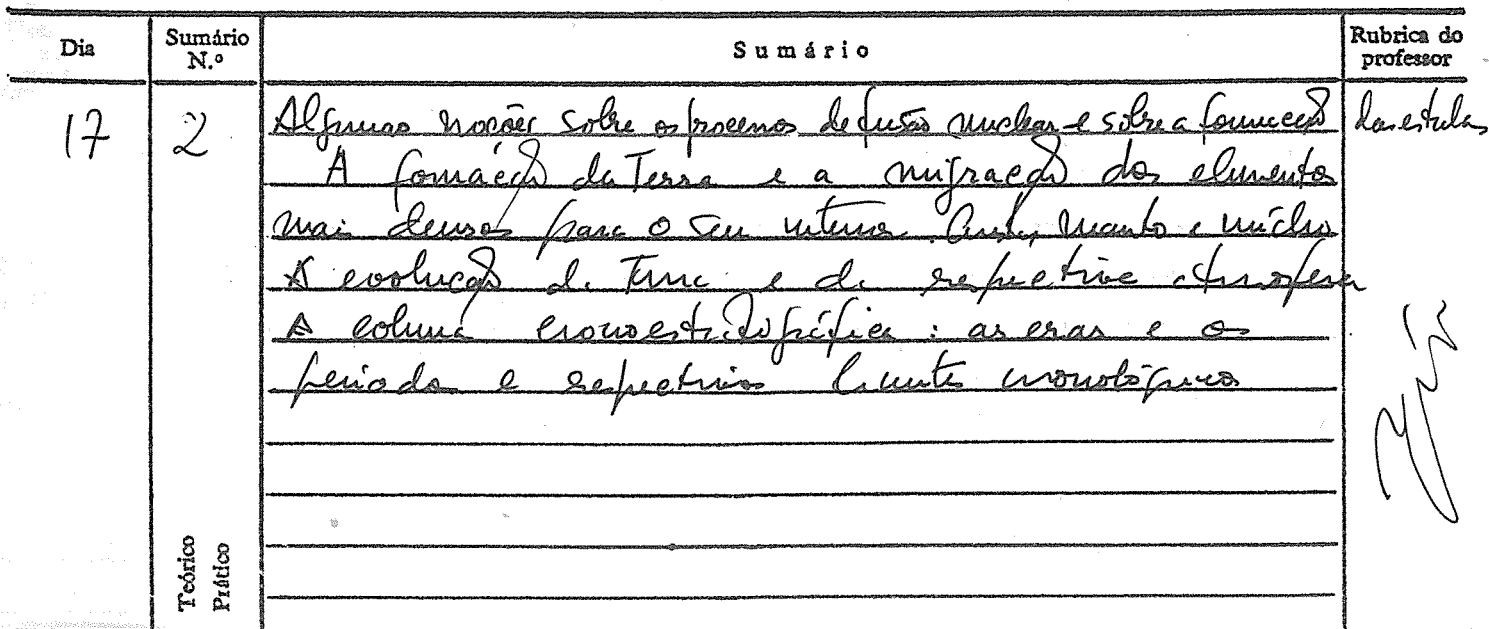 Dia
Sumário N.º
Sumário
Rubrica do professor
17
2
Algumas noções sobre os processos de fusão nuclear e sobre a formação das estrelas
A formação da Terra e a migração dos elementos
mais densos para o seu interior. Crosta, manto e núcleo
A evolução da Terra e da respectiva atmosfera
A coluna cronoestratigráfica : as eras e os
períodos e respectivos limites cronológicos
Teórico
Prático